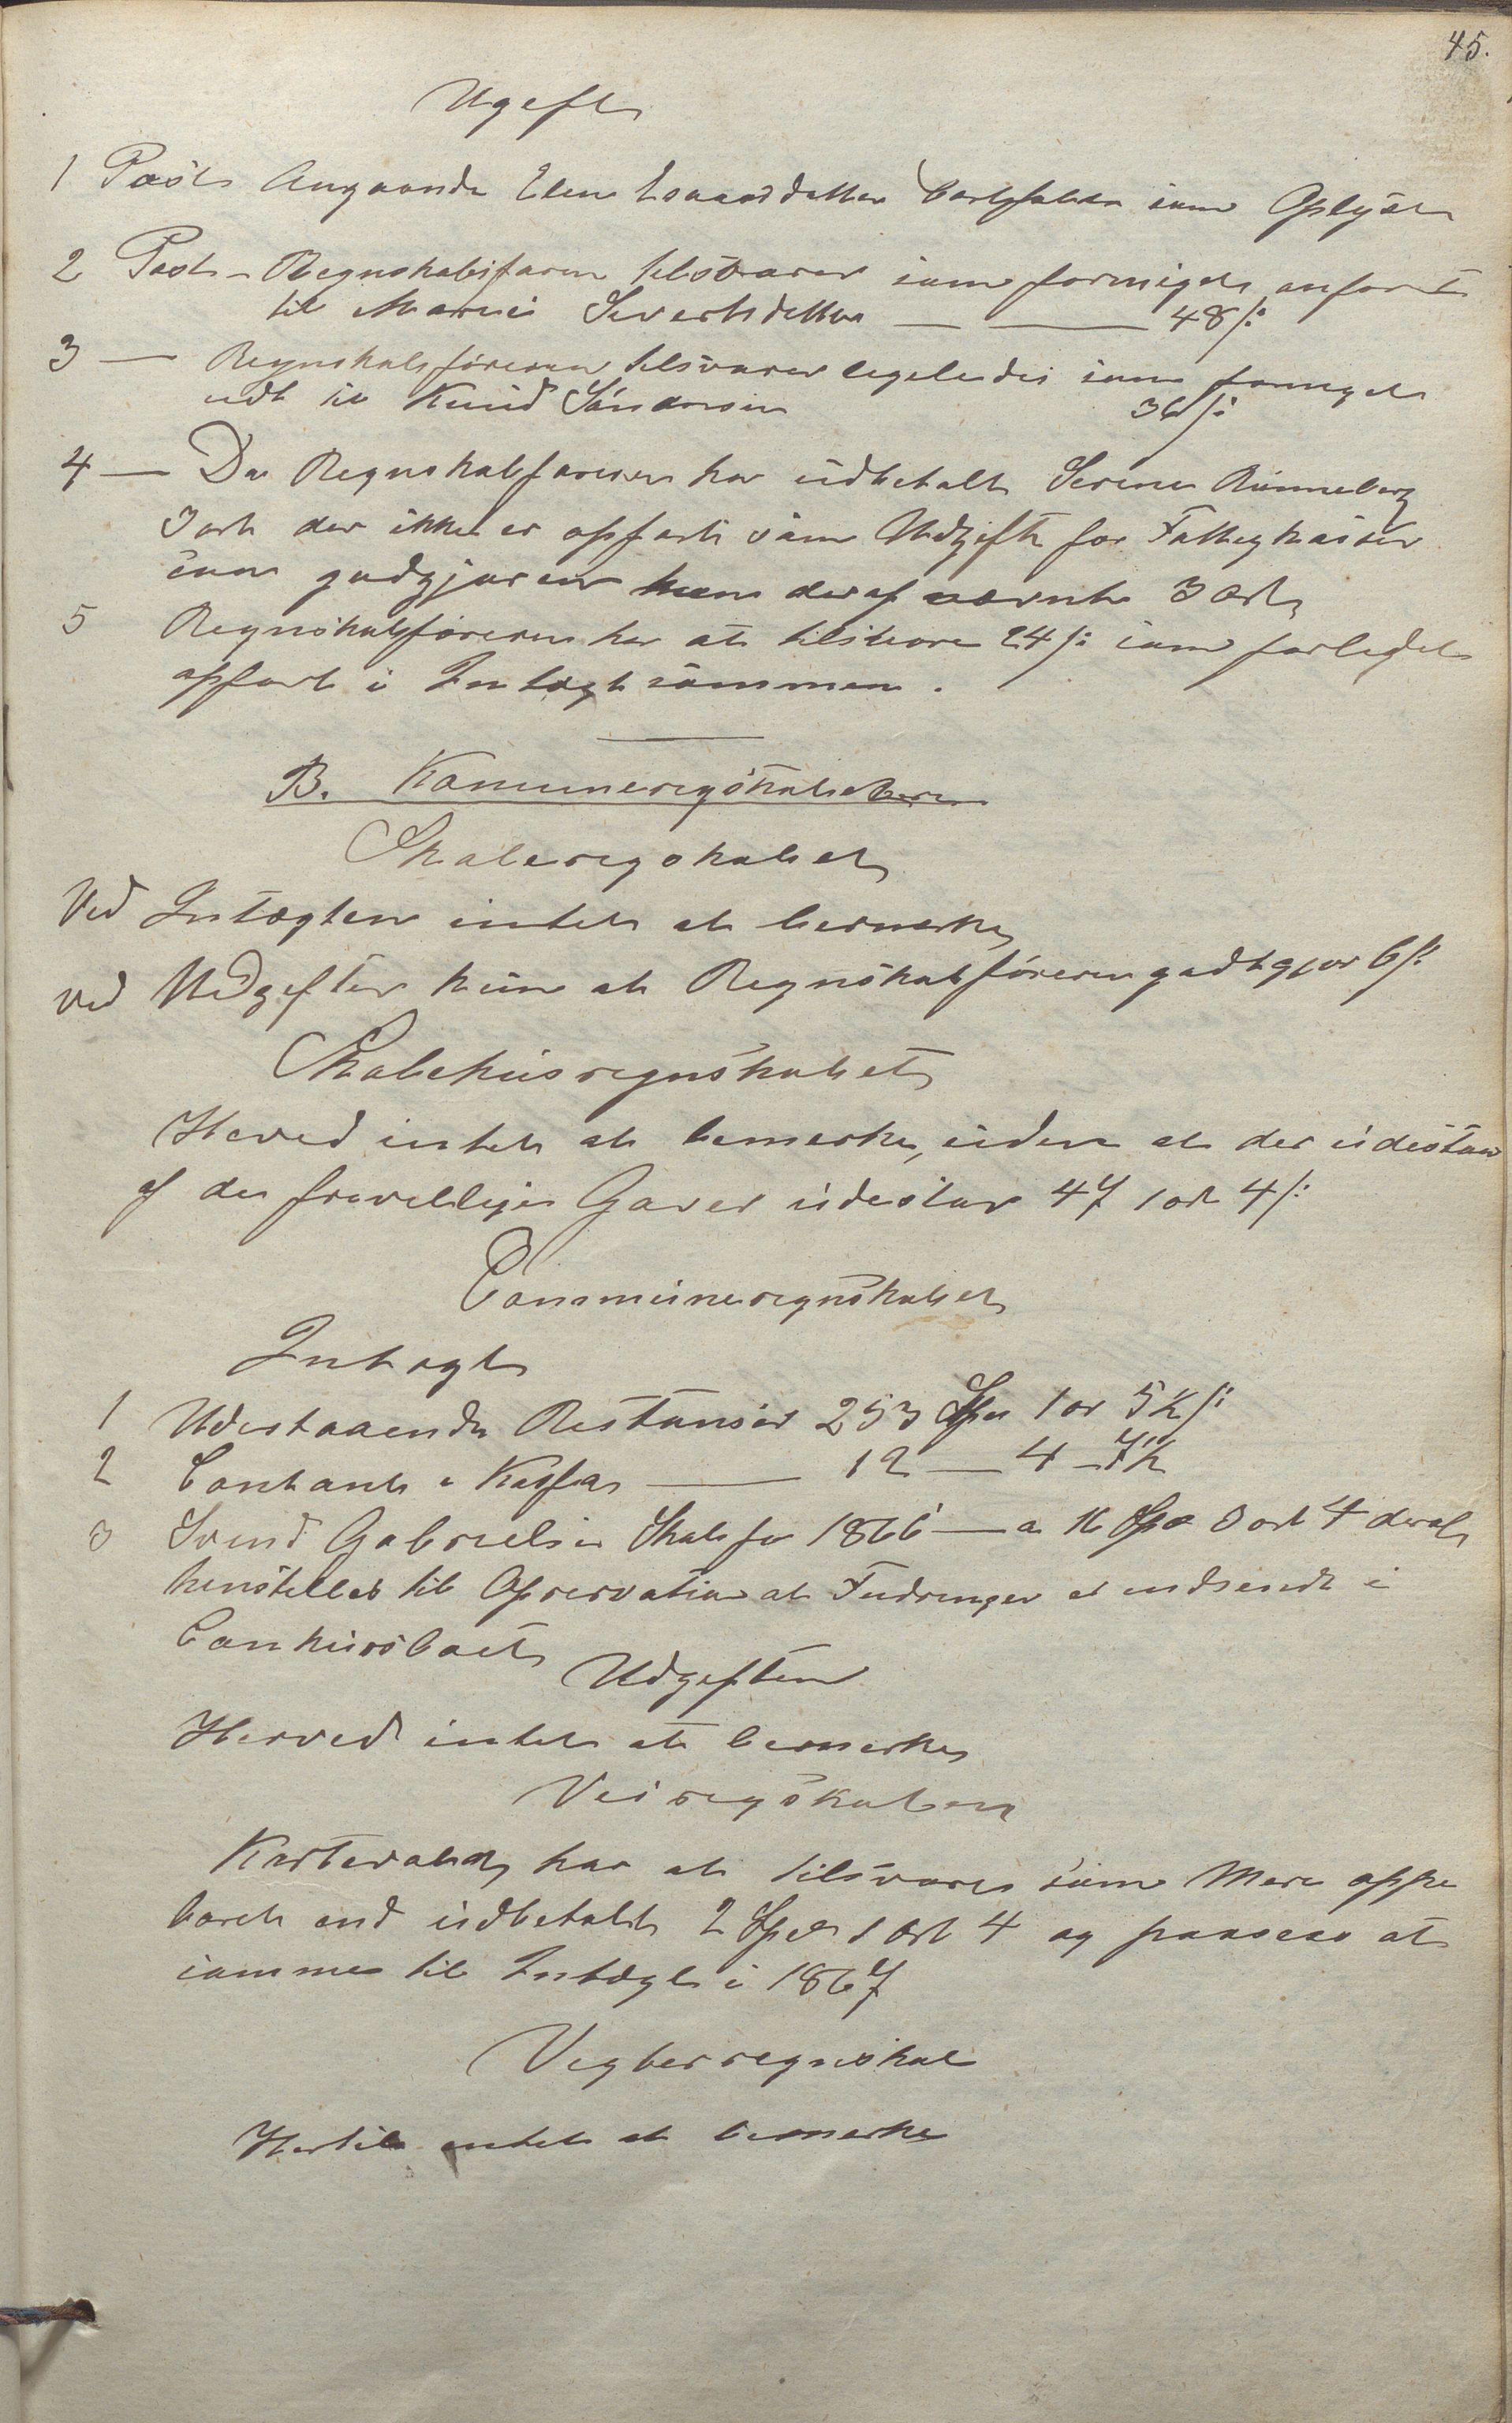 45.
Ugeft
1 Post Angaaende Elen Isaacsdatter bortfalder som Oplyst
2 Post - Regnskabsføren tilsvarer som formeget anført
til Maren Sivertsdatter — — 48 s:
3 — Regnskabsføreren tilsvarer legeledes som formeget
udt til Knud Sandersen 36 s:
4 — Da Regnskabsføreren har udbetalt Serine Rünneberg
3 ort der ikke er opført som Udgift for Fattigkassen
som godgjøren ham deraf nævnte 3 Ort
5 Regnskabsføreren har at tilsvare 24 s: som forledet
opført i Intægt sammen.
B. Komuneregskaberne
Skoleregskabet
Ved Intægten intet at bemærke
ved Udgifter kun at Regnskabsføreren godtgjør 6 s:
Skolehusregnskabet
Herved intet at bemærke, uden at der udestaar
af de frivellige Gaver udestaar 47 1 ort 4 s:
Communeregnskabet
Intægt
1 Udestaaende Restanser 253 Spd 1 or 5½ s:
2 Contant i Kassen — 12 — 4 - 7½
3 Svend Gabrielsen Skat for 1866 — a 16 Spd 3 ort 4 deraf
henstilles til Opservation at Fudringen er indsendt i
Conkursboet
Udgiften
Herved intet at bemærke
Veiregskaben
har at tilsvare som Mere oppe
baaret end udbetalt 2 Spd 1 Ort 4 og paasees at
sammes til Intægt i 1867
Vegterregnskab
Hertil intet at bemærke